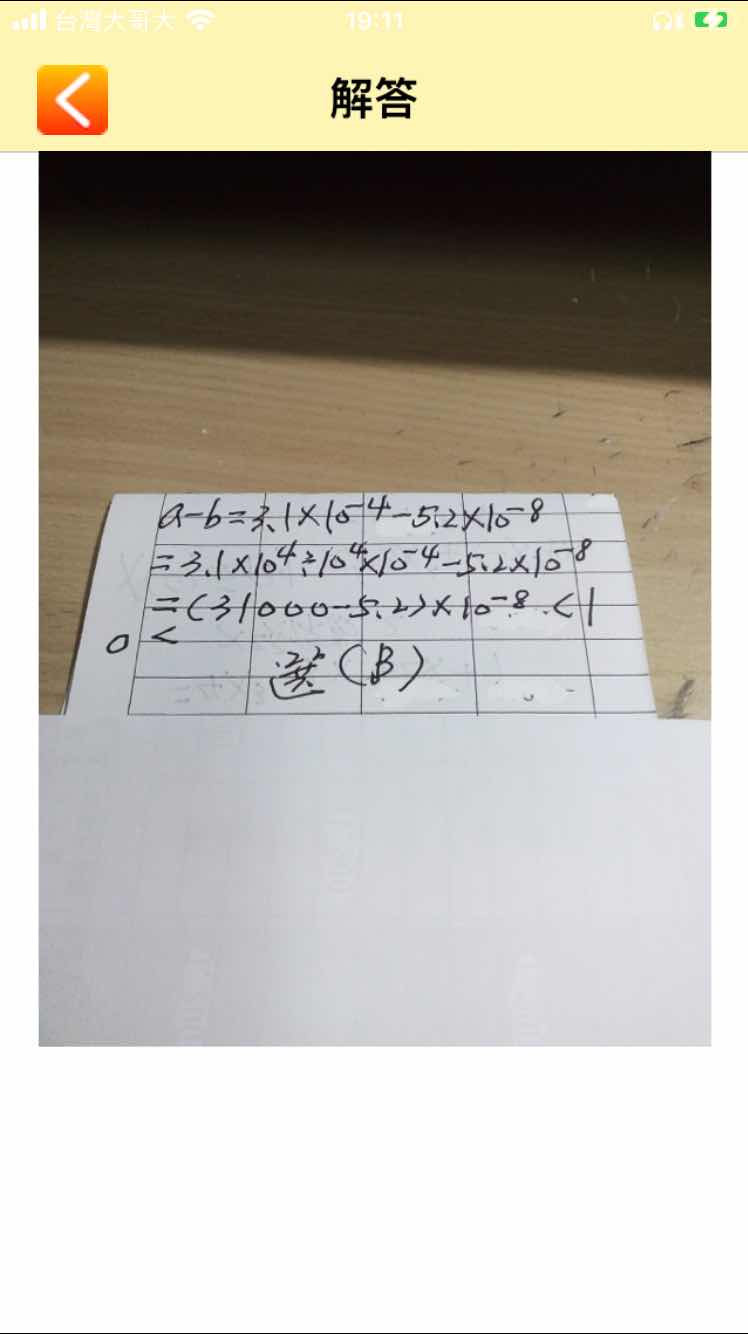 台灣大哥大 19:11
解答
a-b=3.1×10⁻⁴-5.2×10⁻⁸
=3.1×10⁴÷10⁴×10⁻⁴-5.2×10⁻⁸
=(31000-5.2)×10⁻⁸<1
0<
選(B)